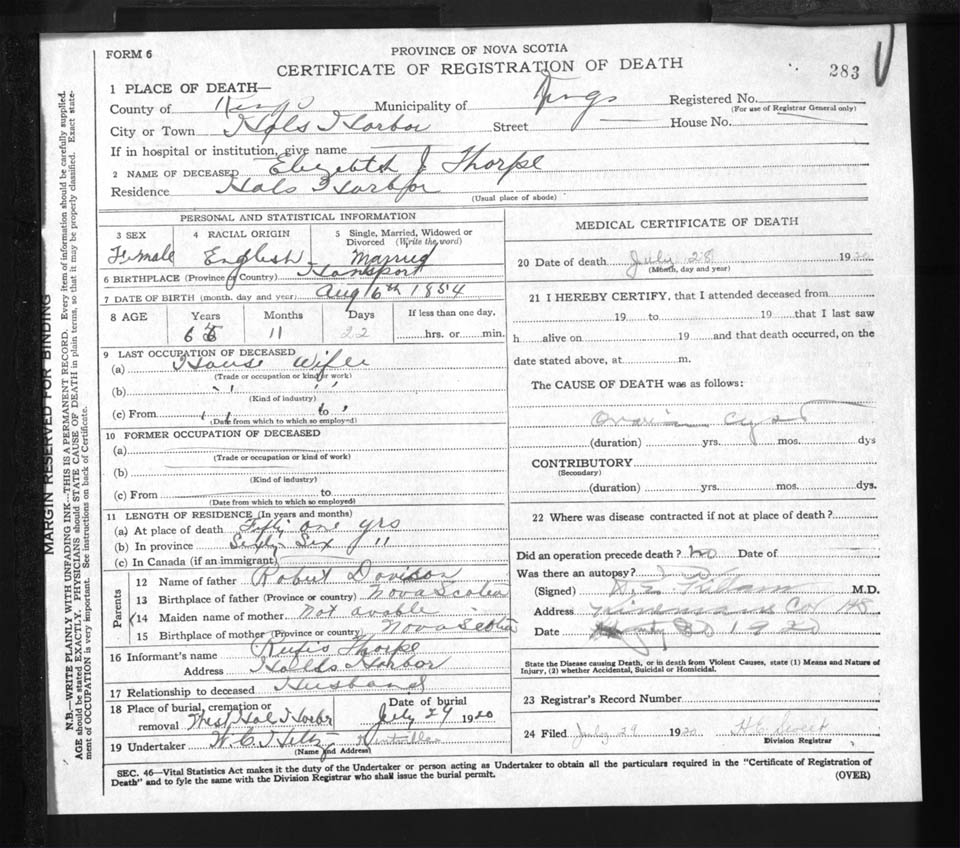 FORM 6
PROVINCE OF NOVA SCOTIA
CERTIFICATE OF REGISTRATION OF DEATH
283
1 PLACE OF DEATH—
County of Kings Municipality of Kings Registered No.
(For use of Registrar General only)
City or Town Hals Harbor Street House No.
If in hospital or institution, give name
2 NAME OF DECEASED Elizabeth J Thorpe
Residence Hals Harbor
(Usual place of abode)
PERSONAL AND STATISTICAL INFORMATION
3 SEX 4 RACIAL ORIGIN 5 Single, Married, Widowed or Divorced (Write the word)
Female English Married
6 BIRTHPLACE (Province or Country) Hantsport
7 DATE OF BIRTH (month, day and year) Aug 6th 1854
8 AGE Years Months Days If less than one day,
11 22 hrs. or min.
9 LAST OCCUPATION OF DECEASED
(a) House Wife
(Trade or occupation or kind of work)
(b) " "
(Kind of industry)
(c) From " to "
(Date from which to which so employed)
10 FORMER OCCUPATION OF DECEASED
(a)
(Trade or occupation or kind of work)
(b)
(Kind of industry)
(c) From to
(Date from which to which so employed)
11 LENGTH OF RESIDENCE (In years and months)
(a) At place of death Fifty one yrs
(b) In province Sixty Six "
(c) In Canada (if an immigrant)
Parents
12 Name of father Robert Davison
13 Birthplace of father (Province or country) Nova Scotia
14 Maiden name of mother Not avable
15 Birthplace of mother (Province or country) Nova Scotia
16 Informant's name Rufis Thorpe
Address Halls Harbor
17 Relationship to deceased Husband
18 Place of burial, cremation or removal West Hal Harbr Date of burial July 29 1920
19 Undertaker W. C. Hiltz
(Name and Address)
MEDICAL CERTIFICATE OF DEATH
20 Date of death July 28 1920
(Month, day and year)
21 I HEREBY CERTIFY, that I attended deceased from
19 to 19 that I last saw
h alive on 19 and that death occurred, on the
date stated above, at m.
The CAUSE OF DEATH was as follows:
Ovarian Cyst
(duration) yrs. mos. dys
CONTRIBUTORY
(Secondary)
(duration) yrs. mos. dys.
22 Where was disease contracted if not at place of death?
Did an operation precede death? no Date of
Was there an autopsy?
(Signed) M.D.
Address Co NS
Date 1920
State the Disease causing Death, or in death from Violent Causes, state (1) Means and Nature of
Injury, (2) whether Accidental, Suicidal or Homicidal.
23 Registrar's Record Number
24 Filed July 29 1920
Division Registrar
SEC. 46—Vital Statistics Act makes it the duty of the Undertaker or person acting as Undertaker to obtain all the particulars required in the "Certificate of Registration of
Death" and to fyle the same with the Division Registrar who shall issue the burial permit.
(OVER)
MARGIN RESERVED FOR BINDING
N.B.—WRITE PLAINLY WITH UNFADING INK—THIS IS A PERMANENT RECORD. Every item of information should be carefully supplied.
AGE should be stated EXACTLY. PHYSICIANS should STATE CAUSE OF DEATH in plain terms, so that it may be properly classified. Exact state-
ment of OCCUPATION is very important. See instructions on back of Certificate.